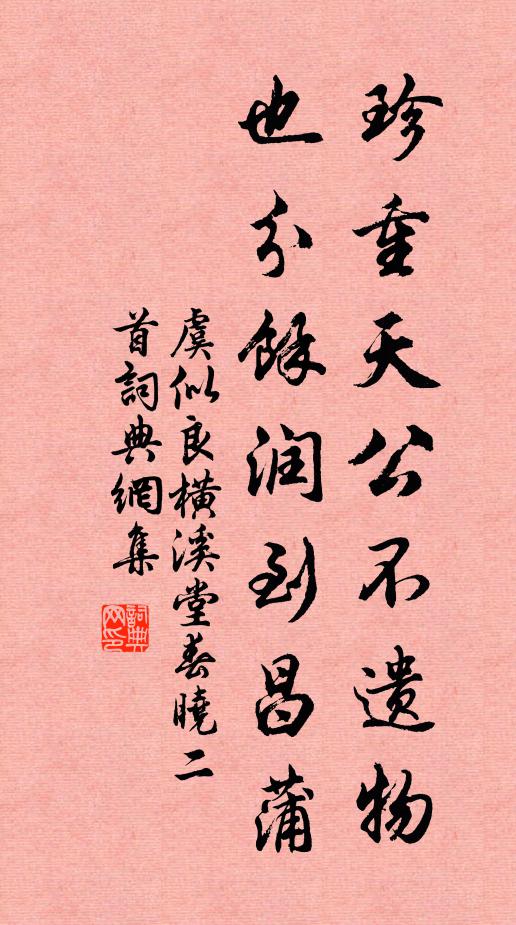 珍重天公不遗物
也分餘润到昌蒲
虞似良橫溪堂春曉二
首詞典網集
詞典网印